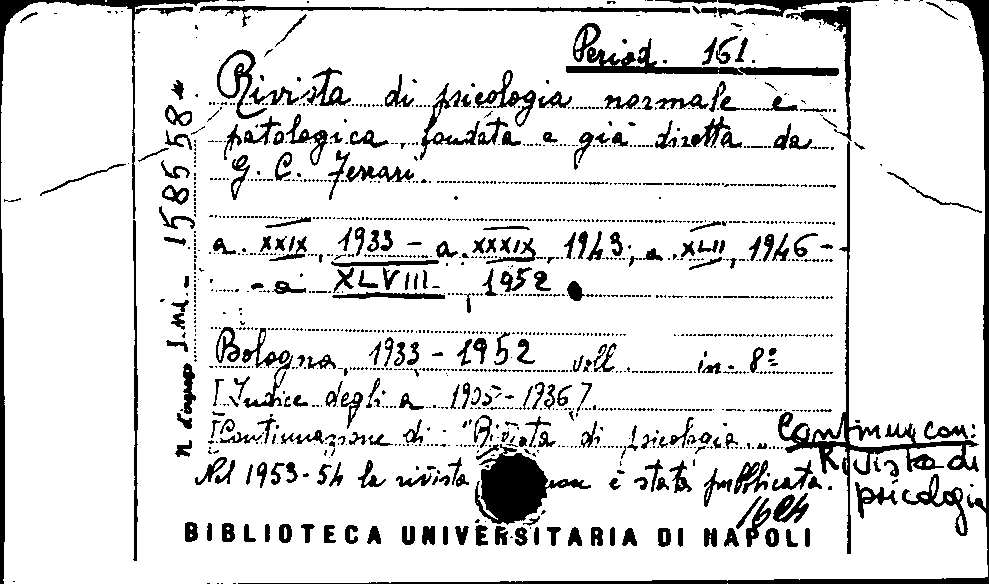 Period. 161.
Rivista di psicologia normale e
patologica, fondata e già diretta da
G. C. Ferrari.
a. XXIX, 1933 - a. XXXIX, 1943; a. XLII, 1946 -
- a XLVIII, 1952
Bologna, 1933 - 1952 voll. in-8º
[Indice degli a. 1905-1936].
[Continuazione di "Rivista di psicologia"
Continua con:
Rivista di
psicologia
Nel 1953-54 la rivista non è stata pubblicata.
BIBLIOTECA UNIVERSITARIA DI NAPOLI
n. d'ingresso 158558